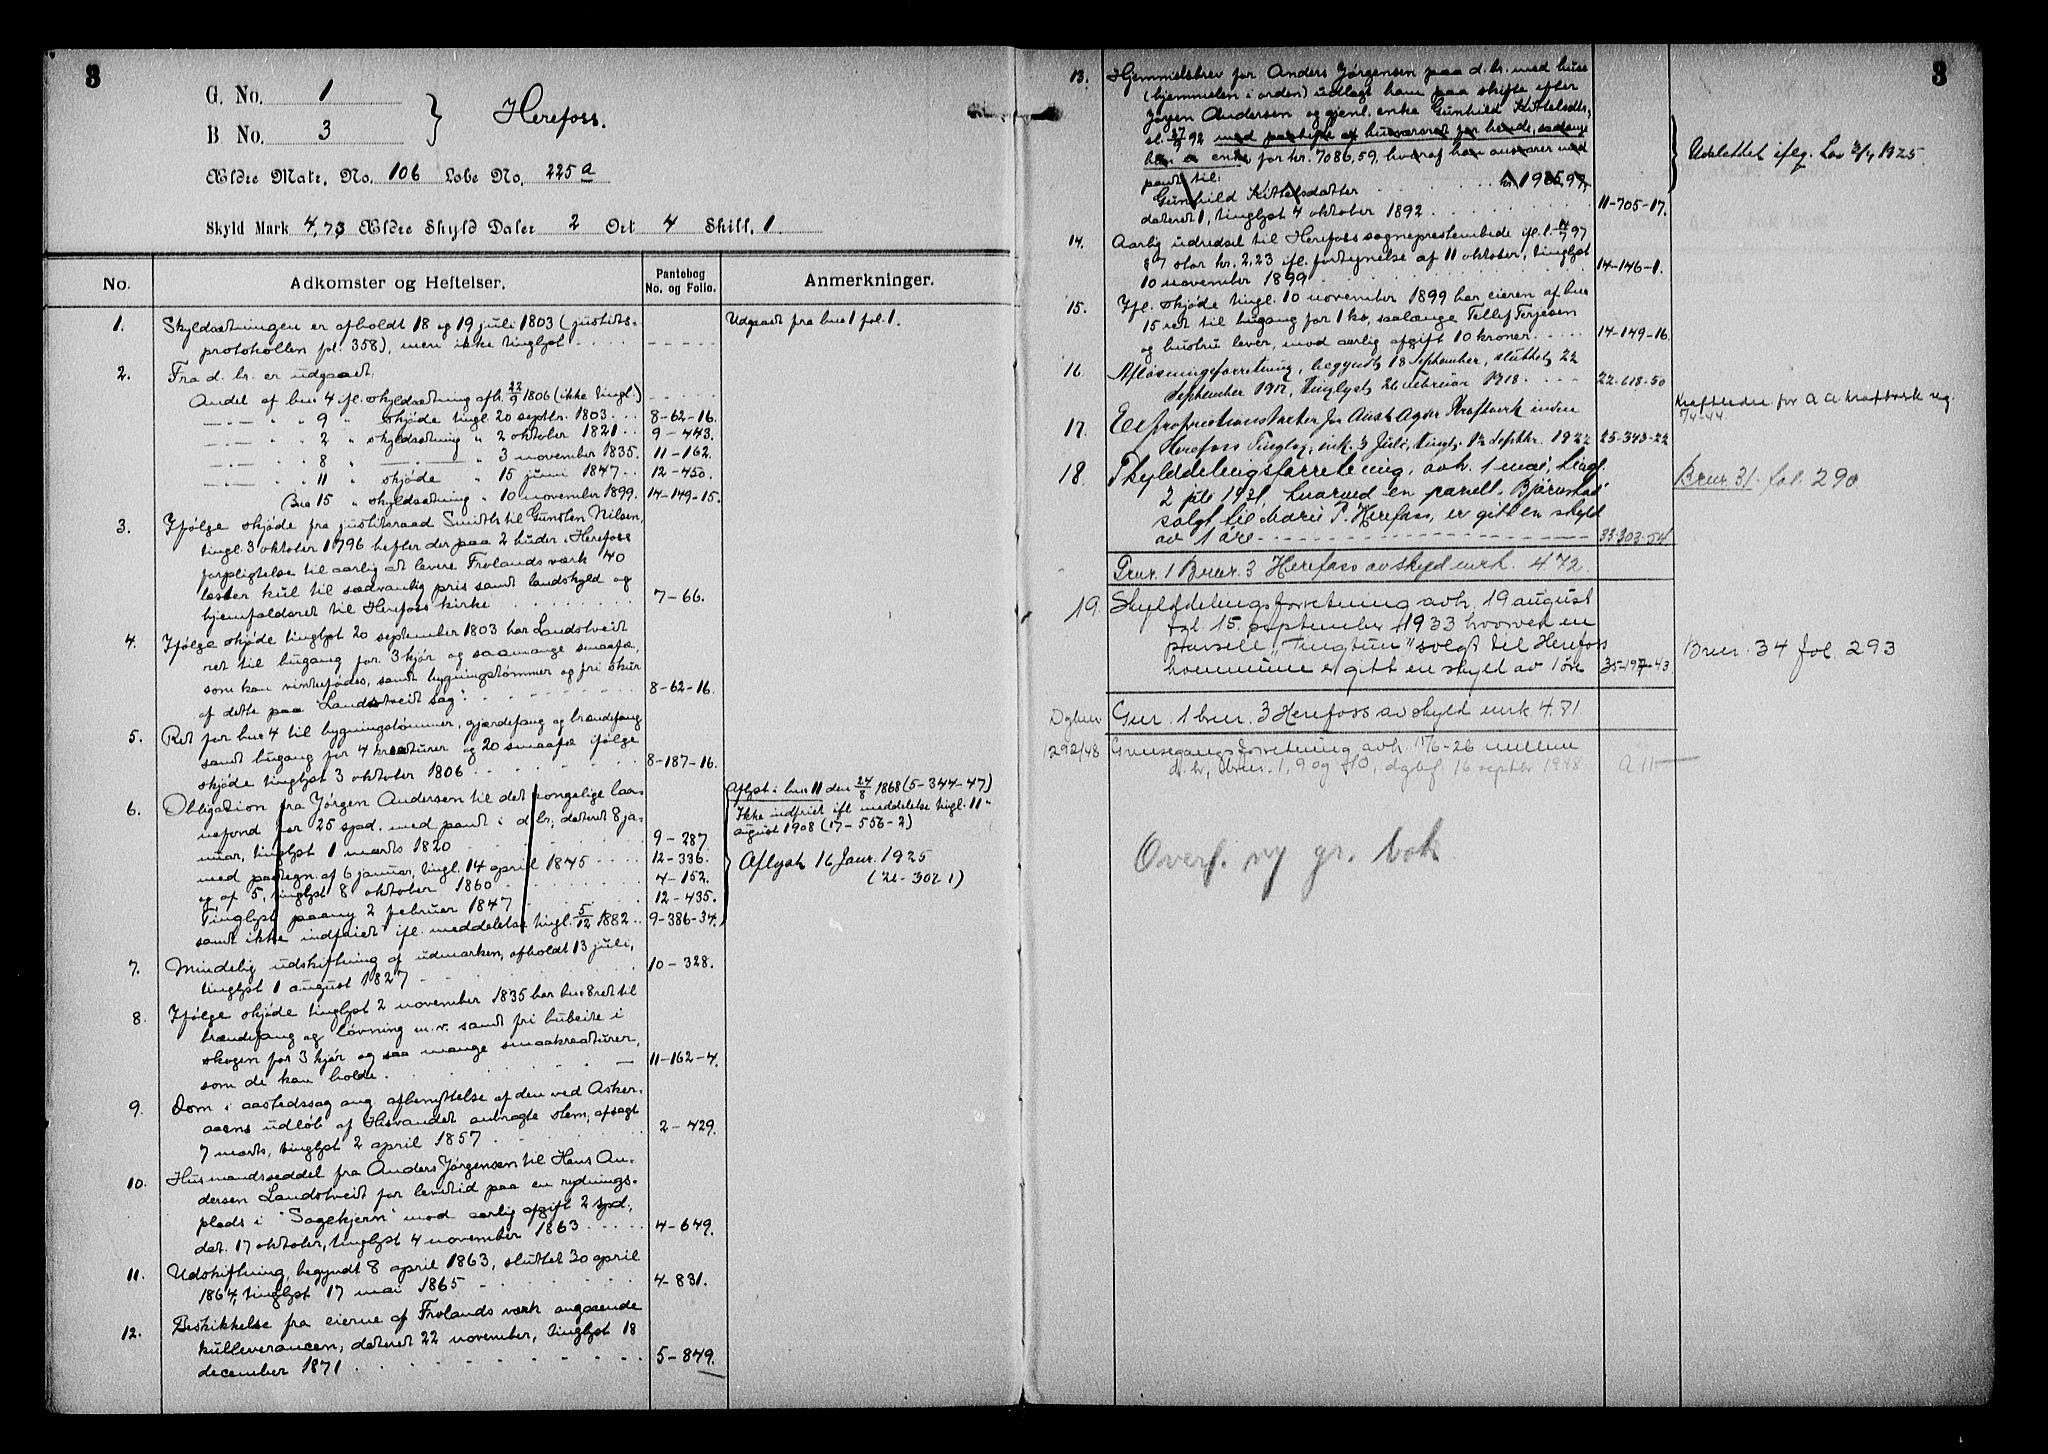 3
G. No. 1
B No. 3
Herefoss.
Ældre Matr. No. 106 Løbe No. 225a
Skyld Mark 4,73 Ældre Skyld Daler 2 Ort 4 Skill. 1
No. Adkomster og Heftelser. Pantebog No. og Folio. Anmerkninger.
1. Skyldsætningen er afholdt 18 og 19 juli 1803 (justits- Udgaaet fra bno 1 fol. 1.
protokollen fol. 358), men ikke tinglyst
2. Fra d. br. er udgaaet.
Andel af bno 4 ifl. skyldsætning afh. 22/9 1806 (ikke tingl.)
—.— " " 9 " skjøde tingl. 20 septbr. 1803 8-62-16.
—.— " " 2 " skyldsætning " 2 oktober 1821 9-443.
—.— " " 8 " —— " 3 november 1835. 11-162.
—.— " " 11 " skjøde " 15 juni 1847 12-450.
Bno 15 " skyldsætning " 10 november 1899. 14-149-15.
3. Ifølge skjøde fra justitsraad Smith til Gunsten Nilsen,
tingl. 3 oktober 1796 hefter der paa 2 huder i Herefoss
forpligtelse til aarlig at levere Frolands værk 40
lester kul til sædvanlig pris samt landskyld og
hjemfaldsret til Herefoss kirke 7-66.
4. Ifølge skjøde tinglyst 20 september 1803 har Landstveit
ret til hugang for 3 kjør og saamange smaafæ,
som kan vinterfødes, samt bygningstømmer og fri skur
af dette paa Landstveit sag. 8-62-16.
5. Ret for bno 4 til bygningstømmer, gjærdefang og brændefang
samt hugang for 4 kreaturer og 20 smaafæ ifølge
skjøde tinglyst 3 oktober 1806 8-187-16.
6. Obligasion fra Jørgen Andersen til det kongelige laa- Aflyst i bno 11 den 24/8 1868 (5-344-47)
nefond for 25 spd. med pant i d. br., dateret 8 ja- Ikke indfriet ifl. meddelelse tingl. 11
nuar, tinglyst 1 marts 1820 9-287. august 1908 (17-556-2)
med paategn. af 6 januar, tingl. 14 april 1845 12-336. Aflyst 16 Janr. 1925
og af 5, tinglyst 8 oktober 1860 4-152. (26-302 1)
Tinglyst paany 2 februar 1847 12-435.
samt ikke indfriet ifl. meddelelse tingl. 5/12 1882 9-386-34.
7. Mindelig udskiftning af udmarken, afholdt 13 juli,
tinglyst 1 august 1827 10-328.
8. Ifølge skjøde tinglyst 2 november 1835 har bno 8 ret til
brændefang og løvning m. v. samt fri hubeite i
skogen for 3 kjør og saa mange smaakreaturer,
som de kan holde. 11-162-4.
9. Dom i aastedssag ang. afbenyttelse af den ved Asker-
aaens udløb af Hisvandet anbragte stem, afsagt
7 marts, tinglyst 2 april 1857 2-429.
10. Husmandsseddel fra Anders Jørgensen til Hans An-
dersen Landstveit for levetid paa en rydnings-
plads i "Sagekjern" mod aarlig afgift 2 spd,
dat. 17 oktober, tinglyst 4 november 1863 4-649.
11. Udskiftning, begyndt 8 april 1863, sluttet 30 april
1864, tinglyst 17 mai 1865 4-831.
12. Beskikkelse fra eierne af Frolands værk angaaende
kulleverancen, dateret 22 november, tinglyst 18
december 1871 5-849.
3
13. Hjemmelsbrev for Anders Jørgensen paa d. br. med huse
(hjemmelen i orden) udlagt ham paa skifte efter
Jørgen Andersen og gjenl. enke Gunhild Kittelsdtr.
sl. 27/9 92 med paahefte af husværet for hende, saalænge Udslettet iflg. Lov 3/4 1925.
hun er enke for kr. 7086,59, hvoraf han ansvarer med
pant til:
Gunhild Kittelsdatter kr. 1985,97,
dateret 1, tinglyst 4 oktober 1892 11-705-17.
14. Aarlig udredsel til Herefoss sogneprestembede
stor kr. 2,23 ifl. fortegnelse af 11 oktober, tinglyst
10 november 1899 14-146-1.
15. Ifl. skjøde tingl. 10 november 1899 har eieren af bno
15 ret til hugang for 1 ko, saalænge Tellef Terjesen
og hustru lever, mod aarlig afgift 10 kroner. 14-149-16.
16. Afløsningsforretning, begyndt 18 September, sluttet 22
September 1917, tinglyst 26 februar 1918 22-618-50
17. Expropriationstakst for Aust Agder Kraftverk inden Kraftledn. for A A kraftverk reg. 5/4-44
Herefoss Tinglag, mk. 3 Juli, tingl. 12 Septbr. 1922 25-343-22
18 Skylddelingsforretning, avh. 1 mai, tingl. Brnr. 31 fol. 290.
2 juli 1931, hvorved en parsell "Bjørnstad"
solgt til Marie T. Herefoss, er gitt en skyld
av 1 øre 33-303-54
Gnr. 1 Brnr. 3 Herefoss av skyld mrk. 4.72.
19 Skylddelingsforretning avh. 19 august
tgl 15. september 1933 hvorved en
parsell "Tingtun" solgt til Herefoss Bnr. 34 fol. 293
kommune er gitt en skyld av 1 øre 35-197-43
Gnr. 1 bnr. 3 Herefoss av skyld mrk 4.71.
Dgbnr 1292/48 Grensegangsforretning avh. 11/6-26 mellem
d. br., bnr. 1, 9 og 10, dgbf. 16 septbr 1948 A 11
Overf. ny gr. bok